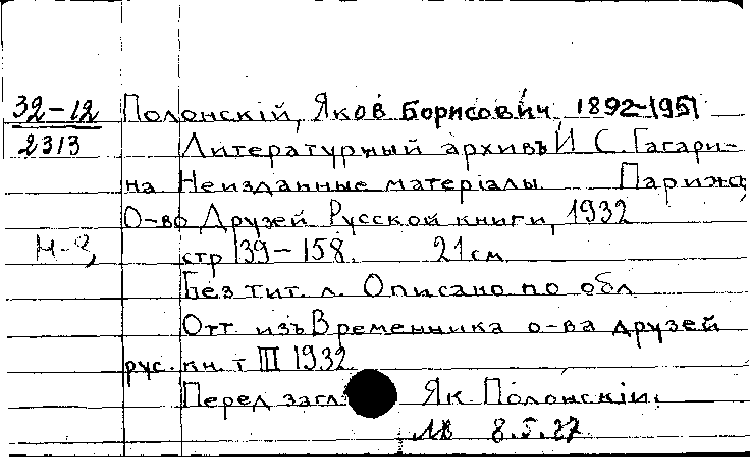 32-12 Полонскій, Яков Борисович, 1892-1951
2313 Литературный архивъ И С. Гагари-
на Неизданные матеріалы. Парижъ,
О-во Друзей Русской книги, 1932
стр 139-158. 21 см
Без тит. л. Описано по обл
Отт изъ Временника о-ва друзей
рус. кн. т III 1932.
Перед загл Як Полонскій.
8.5.37